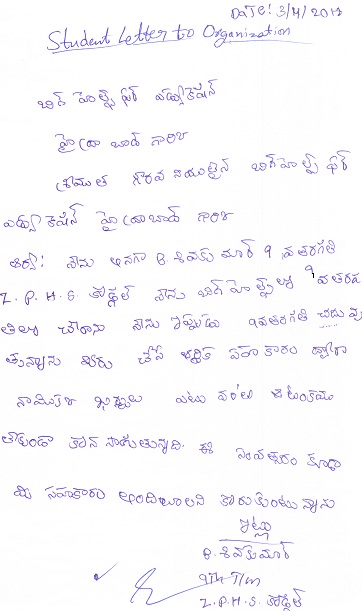 DaTe: 3/4/2013
Student Letter to Organization
బిగ్ హెల్ప్ ఫర్ ఎడ్యుకేషన్
హైద్రాబాద్ గారికి
గౌరవ నీయులైన బిగ్ హెల్ప్ ఫర్
ఎడ్యుకేషన్ హైద్రాబాద్ గారికి
ఆర్యా! నేను అనగా B. శివకుమార్ 9 వ తరగతి
Z. P. H. S. నేను బిగ్ హెల్ప్ లో 9 వతరగ
తిలో చేరాను నేను ఇప్పుడు 9వతరగతి చదువు
తున్నాను మీరు చేసే ఆర్థిక సహకారం ద్వారా
నా ఎటు వంటి ఆటంకము
లేకుండా కొన సాగుతున్నది. ఈ సంవత్సరం కూడా
మీ సహకారం అందించాలని కోరుకుంటున్నాను
ఇట్లు
B. శివకుమార్
9th T/m
Z. P. H. S.